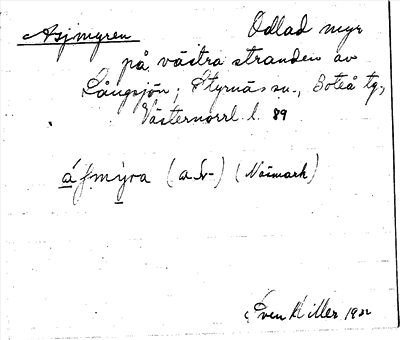 Asjmyren Odlad myr
på västra stranden av
Långsjön, Styrnäs sn., Boteå tg.,
Västernorrl. l. 89
(Näsmark)
Sven Killer 1932